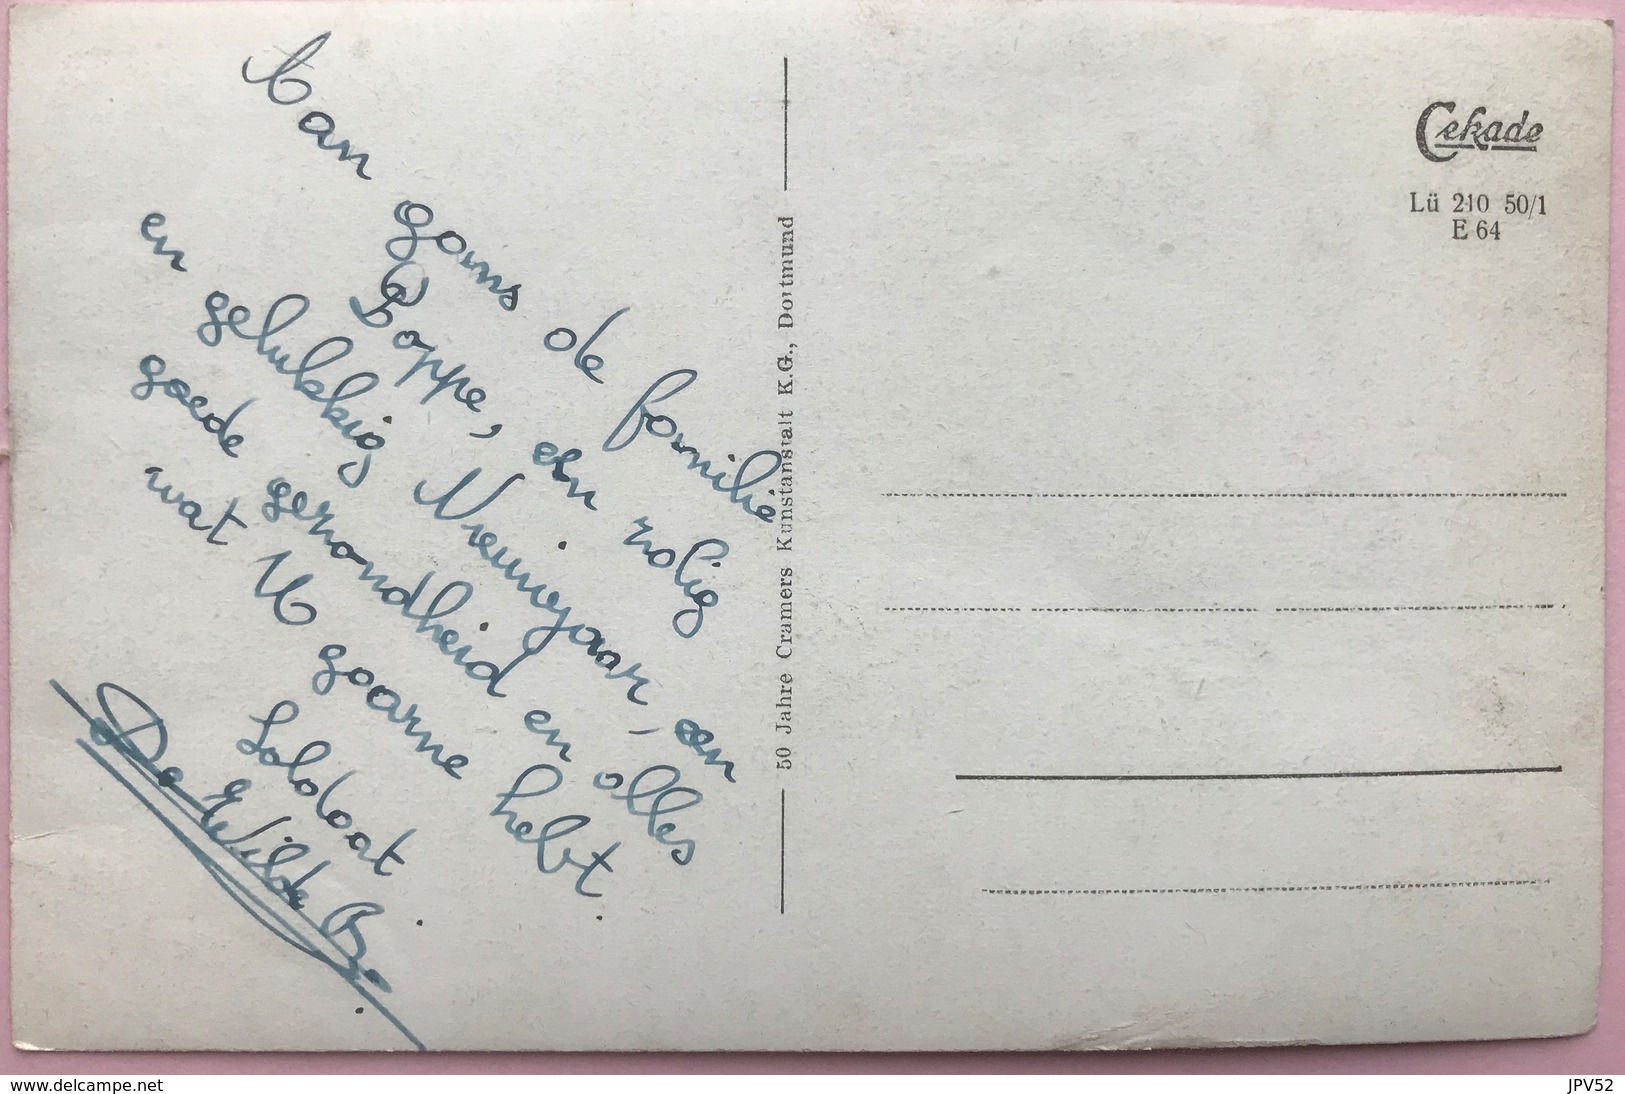 Aan gans de familie
Poppe, een zalig
en gelukkig Nieuwjaar, een
goede gezondheid en alles
wat U gaarne hebt.
Soldaat
De Wilde B.
50 Jahre Cramers Kunstanstalt K.G., Dortmund
Cekade
Lü 210 50/1
E 64
www.delcampe.net
JPV52